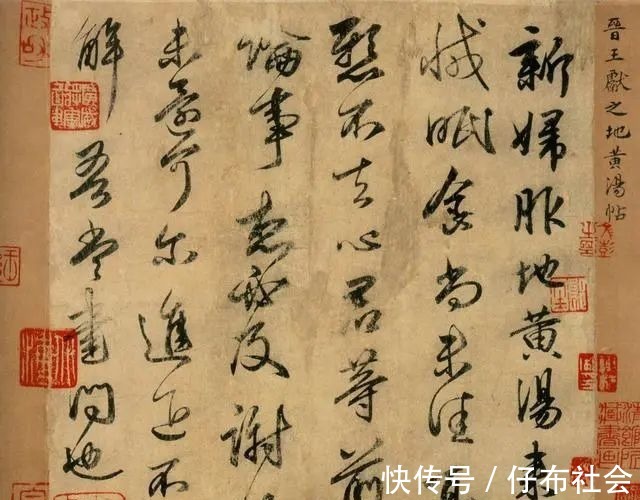 晉王獻之地黃湯帖
新婦服地黄湯来
減眠食尚未佳
懸不去心君等前
論事想必及謝
未還可爾進退不
解吾當書問也
快传号 / 仔布社会